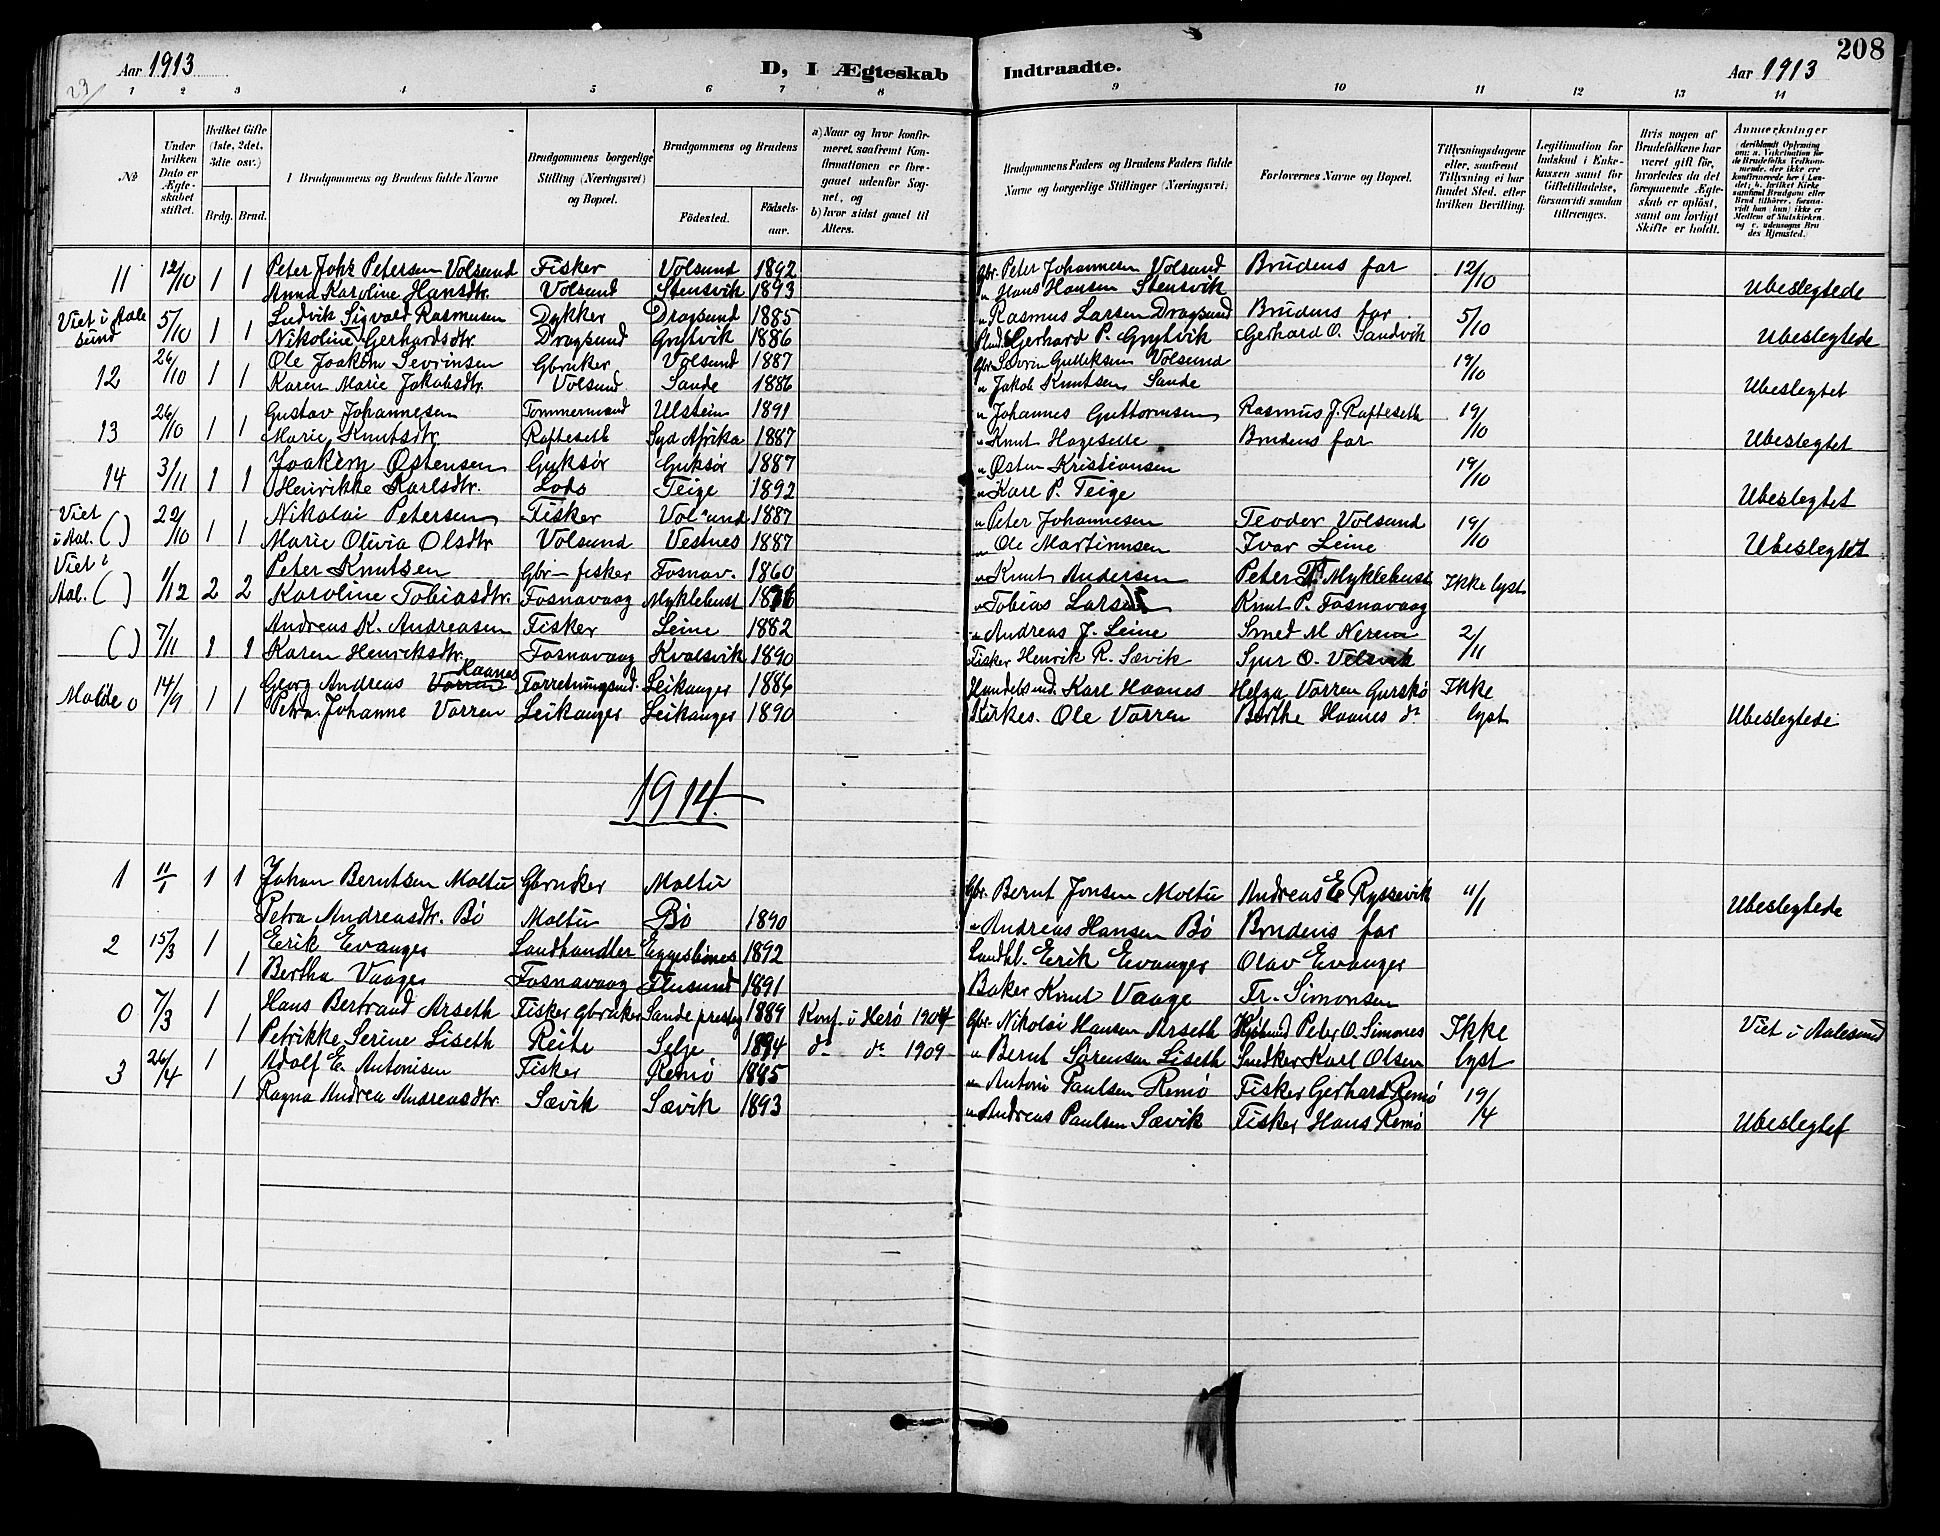 Aar 1913 D, I Ægteskab Indtraadte. Aar 1913 208
1 2 3 4 5 6 7 8 9 10 11 12 13 14
No
Under hvilken Dato er Ægteskabet stiftet.
Hvilket Gifte (1ste, 2det, 3die osv.)
Brdg. Brud.
I Brudgommens og Brudens fulde Navne
Brudgommens borgerlige Stilling (Næringsvei) og Bopæl.
Brudgommens og Brudens
Fødested. Fødselsaar.
a) Naar og hvor konfirmeret, saafremt Konfirmationen er foregaaet udenfor Sognet, og
b) hvor sidst gaaet til Alters.
Brudgommens Faders og Brudens Faders fulde Navne og borgerlige Stillinger (Næringsvei.)
Forlovernes Navne og Bopæl.
Tillysningsdagene eller, saafremt Tillysning ei har fundet Sted, efter hvilken Bevilling.
Legitimation for Indskud i Enkekassen samt for Giftetilladelse, forsaavidt saadan tiltrænges.
Hvis nogen af Brudefolkene har været gift før, hvorledes da det foregaaende Ægteskab er opløst, samt om lovligt Skifte er holdt.
Anmærkninger
11 12/10 1 1 Peter Johs Petersen Volsund Fisker Volsund 1892 Gbr. Peter Johannesen Volsund Brudens far 12/10
Anna Karoline Hansdtr. Volsund Stensvik 1893 " Hans Hansen Stensvik Ubeslegtede
Viet i Aalesund 5/10 1 1 Ludvik Sigvald Rasmusen Dykker Dragsund 1885 " Rasmus Larsen Dragsund Brudens far 5/10
Nikoline Gerhardsdtr. Dragsund Grytvik 1886 Gerhard P. Grytvik Gerhard O. Sandvik Ubeslegtede
12 26/10 1 1 Ole Joakim Sevrinsen Gbruker Volsund 1887 Gbr Sevrin Gulliksen Volsund 19/10
Karen Marie Jakobsdtr. Volsund Sande 1886 " Jakob Knutsen Sande Ubeslegtet
13 26/10 1 1 Gustav Johannesen Tømmermand Ulstein 1891 " Johannes Guttormsen Rasmus J. Rafteseth 19/10
Marie Knutsdtr. Rafteseth Syd Afrika 1887 " Knut Hageselle Brudens far Ubeslegtet
14 3/11 1 1 Joakim Østensen Gurksør Gurksør 1887 " Østen Kristiansen 19/10
Henrikke Karlsdtr. Lods Teige 1892 " Karl P. Teige Ubeslegtet
Viet i Aal. ( ) 22/10 1 1 Nikolai Petersen Fisker Volsund 1887 " Peter Johannesen Teodor Volsund 19/10
Marie Olivia Olsdtr Volsund Vestnes 1887 " Ole Martinusen Ivar Leine Ubeslegtet
Viet i Aal. ( ) 1/12 2 2 Peter Knutsen Gbr- fisker Fosnav. 1860 " Knut Andersen Peter Myklebust Ikke lyst
Karoline Tobiasdtr. Fosnavaag Myklebust " Tobias Larsen Knut P. Fosnavaag
( ) 7/11 1 1 Andreas K. Andreasen Fisker Leine 1882 " Andreas J. Leine Smed M Nerem 2/11
Karen Henriksdtr. Fosnavaag Kvalsvik 1890 Fisker Henrik R. Sævik Sjur O. Velsvik
Molde 0 14/9 1 1 Georg Andreas Vorren Haanes Forretningsmd. Leikanger 1886 Handelsmd. Karl Haanes Helga Vorren Gurskø Ikke
Petra Johanne Vorren Leikanger Leikanger 1890 Kirkes. Ole Vorren Berthe Haanes do lyst Ubeslegtede
1914.
1 11/1 1 1 Johan Berntsen Moltu Gbruker Moltu Gbr. Bernt Jonsen Moltu Andreas E Ryssevik 11/1
Petra Andreasdtr. Bø Moltu Bø 1890 " Andreas Hansen Bø Brudens far Ubeslegtede
2 15/3 1 Erik Evanger Landhandler Eggesbønes 1892 Landhl. Erik Evanger Olav Evanger
1 Bertha Vaage Fosnavaag 1891 Baker Knut Vaage Fr. Simonsen
0 7/3 1 Hans Bertrand Arseth Fisker Gbruker Sande prestg 1889 Konf. i Herø 1904 Gbr. Nikolai Hansen Arseth Peter O. Simones Ikke Viet i Aalesund
1 Petrikke Serine Liseth Reite Selje 1894 do do 1909 " Bernt Sørensen Liseth Snedker Karl Olsen lyst
3 26/4 1 Adolf E. Antonisen Fisker Remø 1885 " Antoni Paulsen Remø Fisker Gerhard Remø 19/4
1 Ragna Andrea Andreasdtr. Sævik Sævik 1893 " Andreas Paulsen Sævik Fisker Hans Remø Ubeslegtet